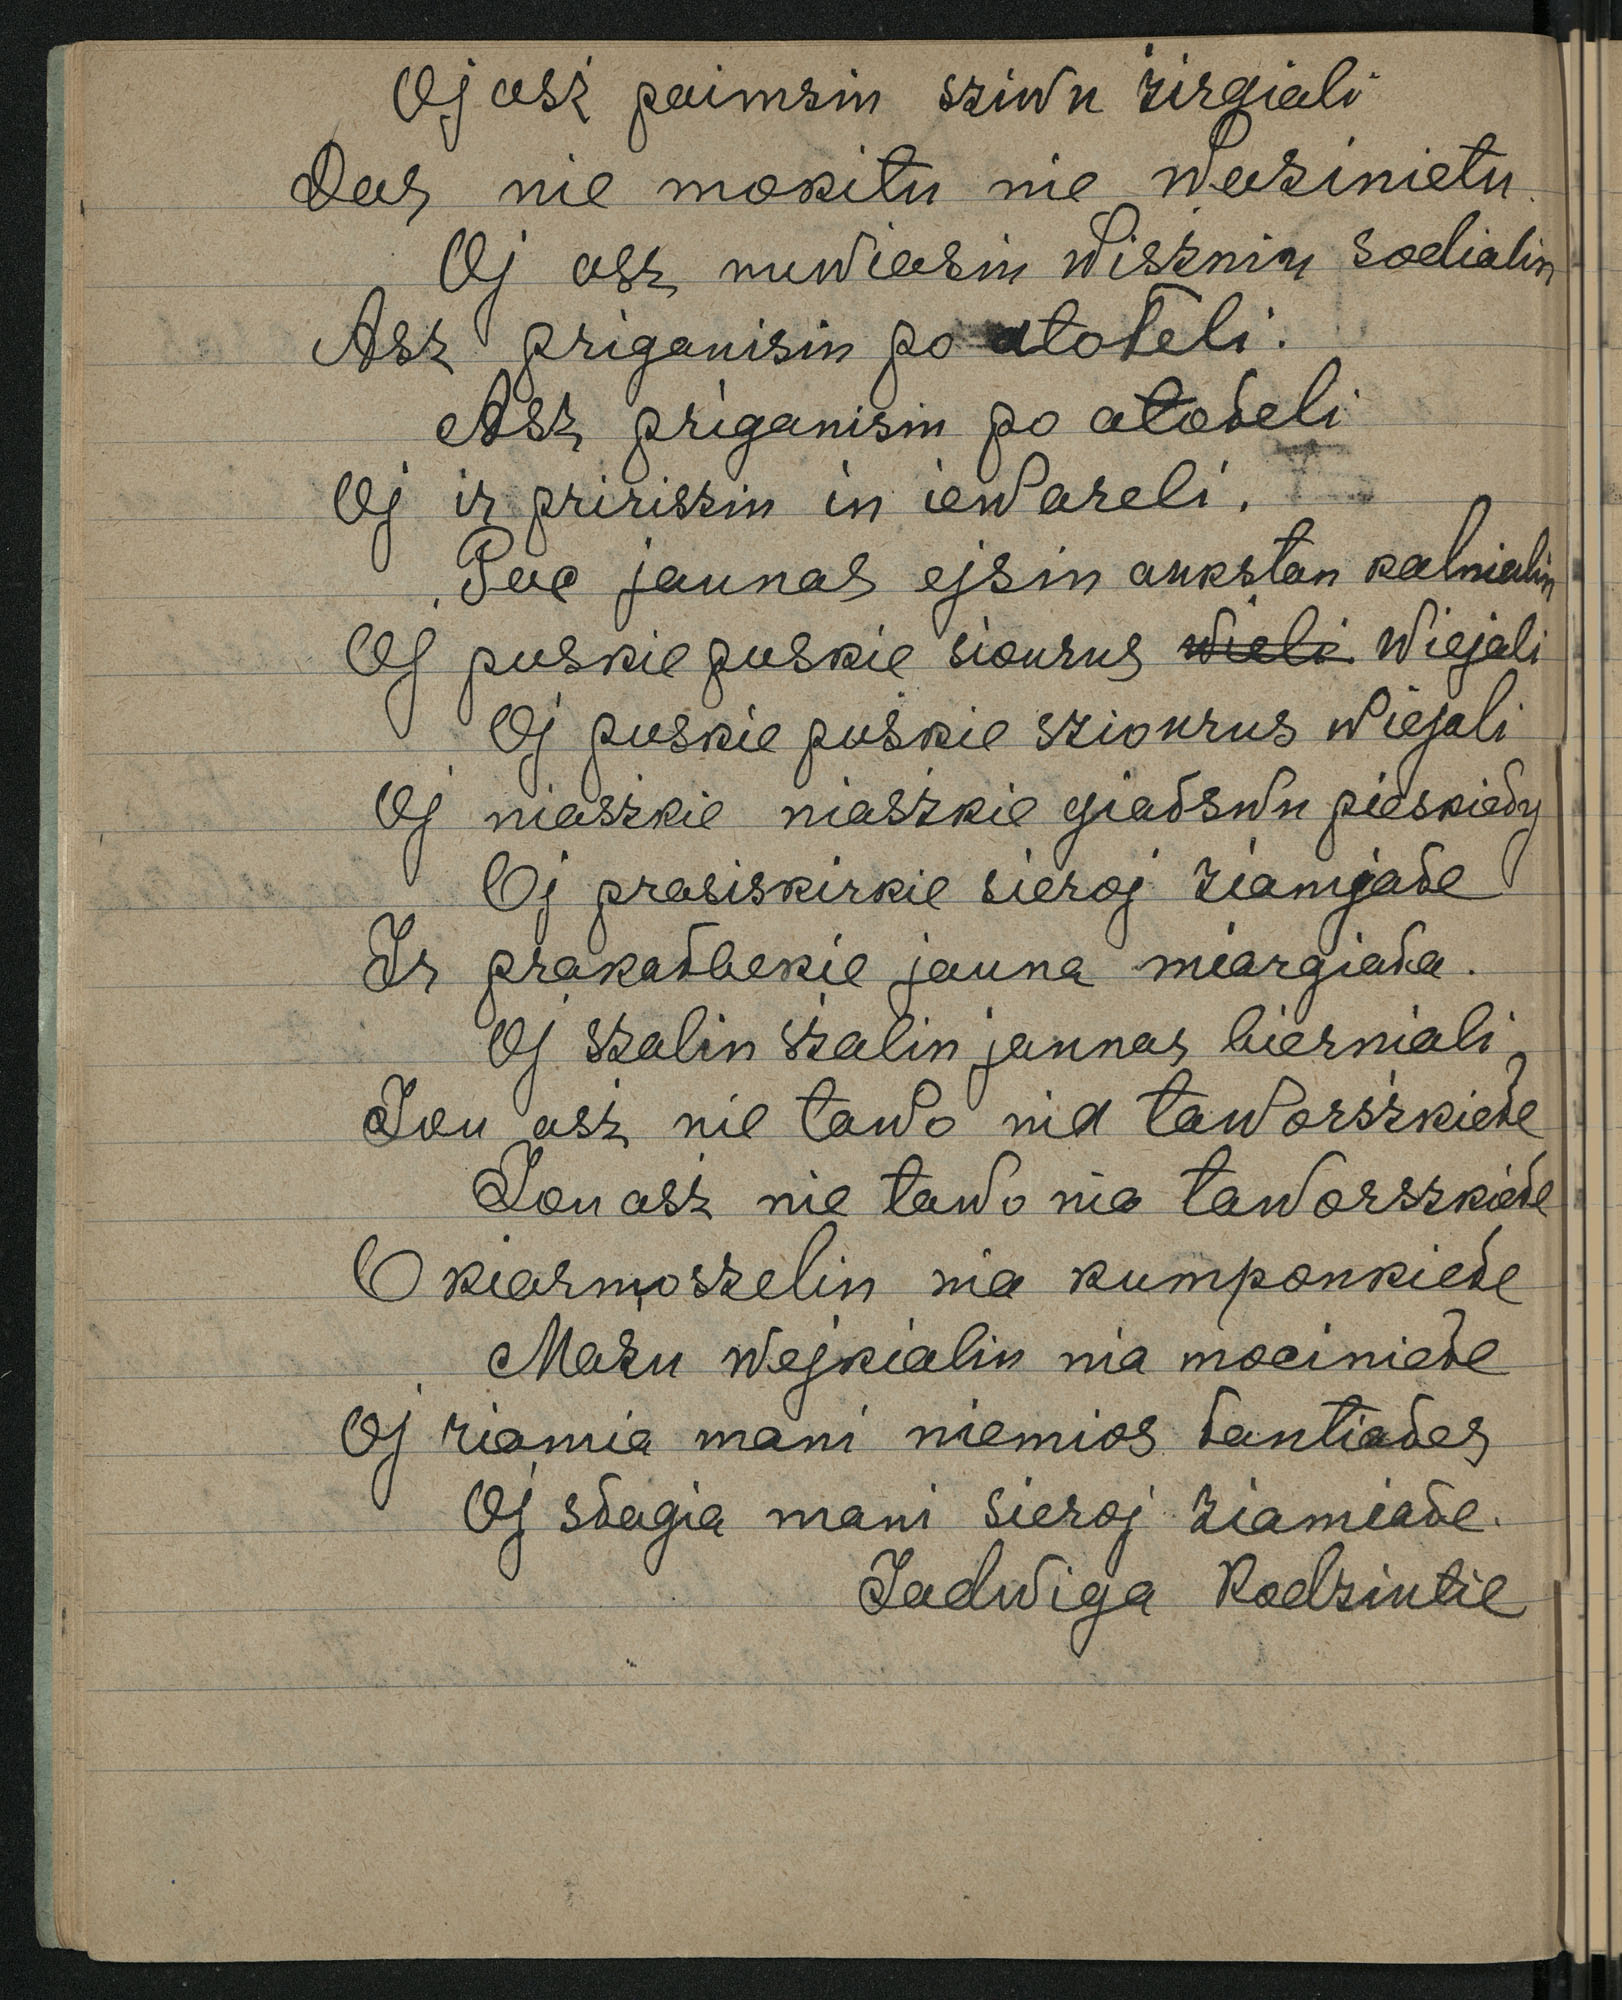 Oj asż paimsin sziwu żirgiali
Dar nie mokitu nie ważinietu.
Oj asz nuwiasiu wiśzniu sodialin
Asz priganisin po atołeli.
Asz priganisin po atołeli
Oj ir pririszin in iewareli.
Pac jaunas ejsin aukstan kalnialin
Oj puskie puskie siourus wieli wiejali
Oj puskie puśkie sziourus wiejali
Oj niaszkie niaszkie giałswu pieskieły
Oj prasiskirkie sieroj ziamjałe
Ir prakałbekie jauna miargiała.
Oj szalin szalin jaunas bierniali
Jou asż nie tawo nia taworszkiełe
Jou asż nie tawo nia taworszkiełe
O kiarmoszelin nia kumpankiełe
Mazu wejkialin nia mociniełe
Oj ziamia mani niemios łantiałes
Oj słagia mani sieroj ziamiałe.
Jadwiga Rodziutie